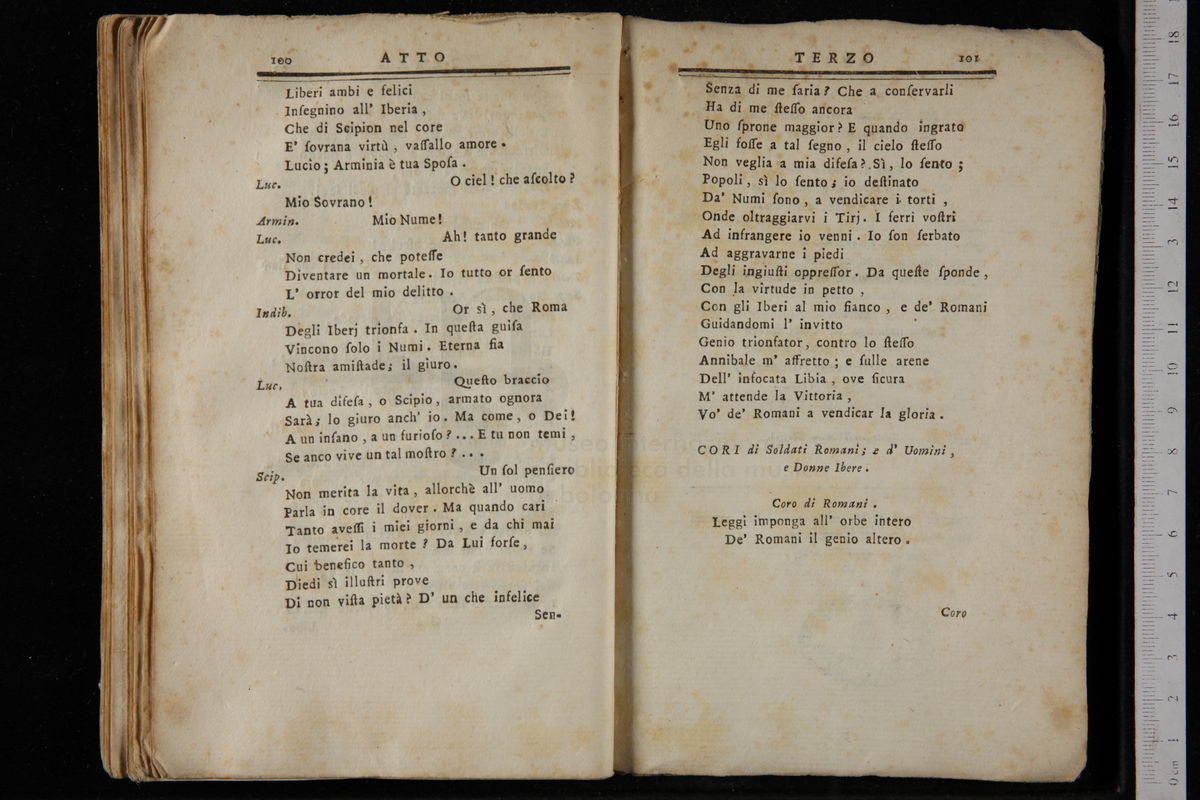 100 ATTO
Liberi ambi e felici
Inſegnino all' Iberia ,
Che di Scipion nel core
E' ſovrana virtù , vaſſallo amore .
Lucio ; Arminia è tua Spoſa .
Luc. O ciel ! che aſcolto ?
Mio Sovrano !
Armin. Mio Nume !
Luc. Ah ! tanto grande
Non credei , che poteſſe
Diventare un mortale . Io tutto or ſento
L' orror del mio delitto .
Indib. Or sì , che Roma
Degli Iberj trionfa . In queſta guiſa
Vincono ſolo i Numi . Eterna fia
Noſtra amiſtade ; il giuro .
Luc. Queſto braccio
A tua difeſa , o Scipio , armato ognora
Sarà ; lo giuro anch' io . Ma come , o Dei !
A un inſano , a un furioſo ? ... E tu non temi ,
Se anco vive un tal moſtro ? ...
Scip. Un ſol penſiero
Non merita la vita , allorchè all' uomo
Parla in core il dover . Ma quando cari
Tanto aveſſi i miei giorni , e da chi mai
Io temerei la morte ? Da Lui forſe ,
Cui benefico tanto ,
Diedi sì illuſtri prove
Di non viſta pietà ? D' un che infelice
Sen-
TERZO 101
Senza di me ſaria ? Che a conſervarli
Ha di me ſteſſo ancora
Uno ſprone maggior ? E quando ingrato
Egli foſſe a tal ſegno , il cielo ſteſſo
Non veglia a mia difeſa ? Sì , lo ſento ;
Popoli , sì lo ſento ; io deſtinato
Da' Numi ſono , a vendicare i torti ,
Onde oltraggiarvi i Tirj . I ferri voſtri
Ad infrangere io venni . Io ſon ſerbato
Ad aggravarne i piedi
Degli ingiuſti oppreſſor . Da queſte ſponde ,
Con la virtude in petto ,
Con gli Iberi al mio fianco , e de' Romani
Guidandomi l' invitto
Genio trionfator , contro lo ſteſſo
Annibale m' affretto ; e ſulle arene
Dell' infocata Libia , ove ſicura
M' attende la Vittoria ,
Vo' de' Romani a vendicar la gloria .
CORI di Soldati Romani ; e d' Uomini ,
e Donne Ibere .
Coro di Romani .
Leggi imponga all' orbe intero
De' Romani il genio altero .
Coro
museo internazionale
biblioteca della musica
bologna
0 cm 1 2 3 4 5 6 7 8 9 10 11 12 13 14 15 16 17 18